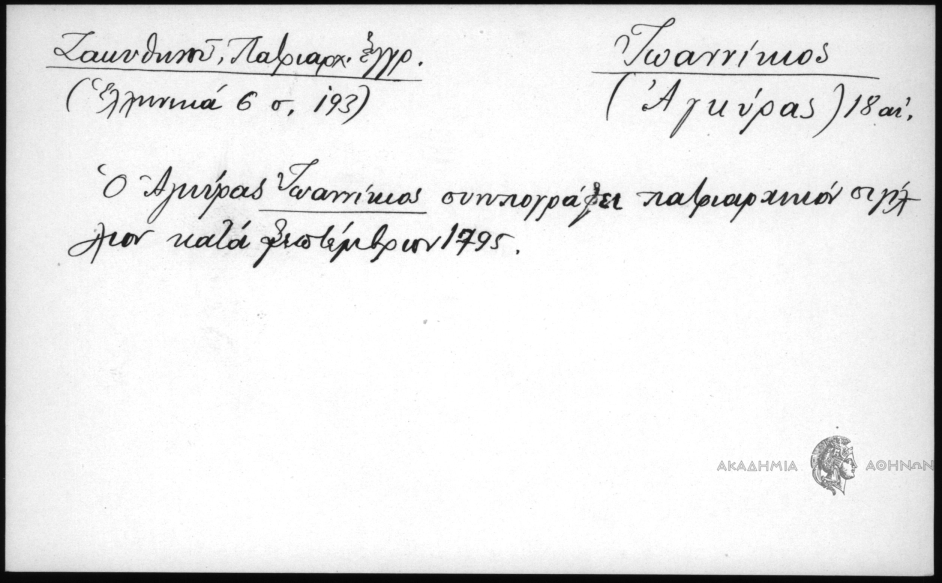 Ζακυθηνοῦ, Πατριαρχ. ἔγγρ.
(Ἑλληνικά 6 σ. 193)
Ἰωαννίκιος
(Ἀγκύρας) 18 αἰ.
Ὁ Ἀγκύρας Ἰωαννίκιος συνυπογράφει πατριαρχικόν σιγίλ
λιον κατά Σεπτέμβριον 1795.
ΑΚΑΔΗΜΙΑ ΑΘΗΝΩΝ